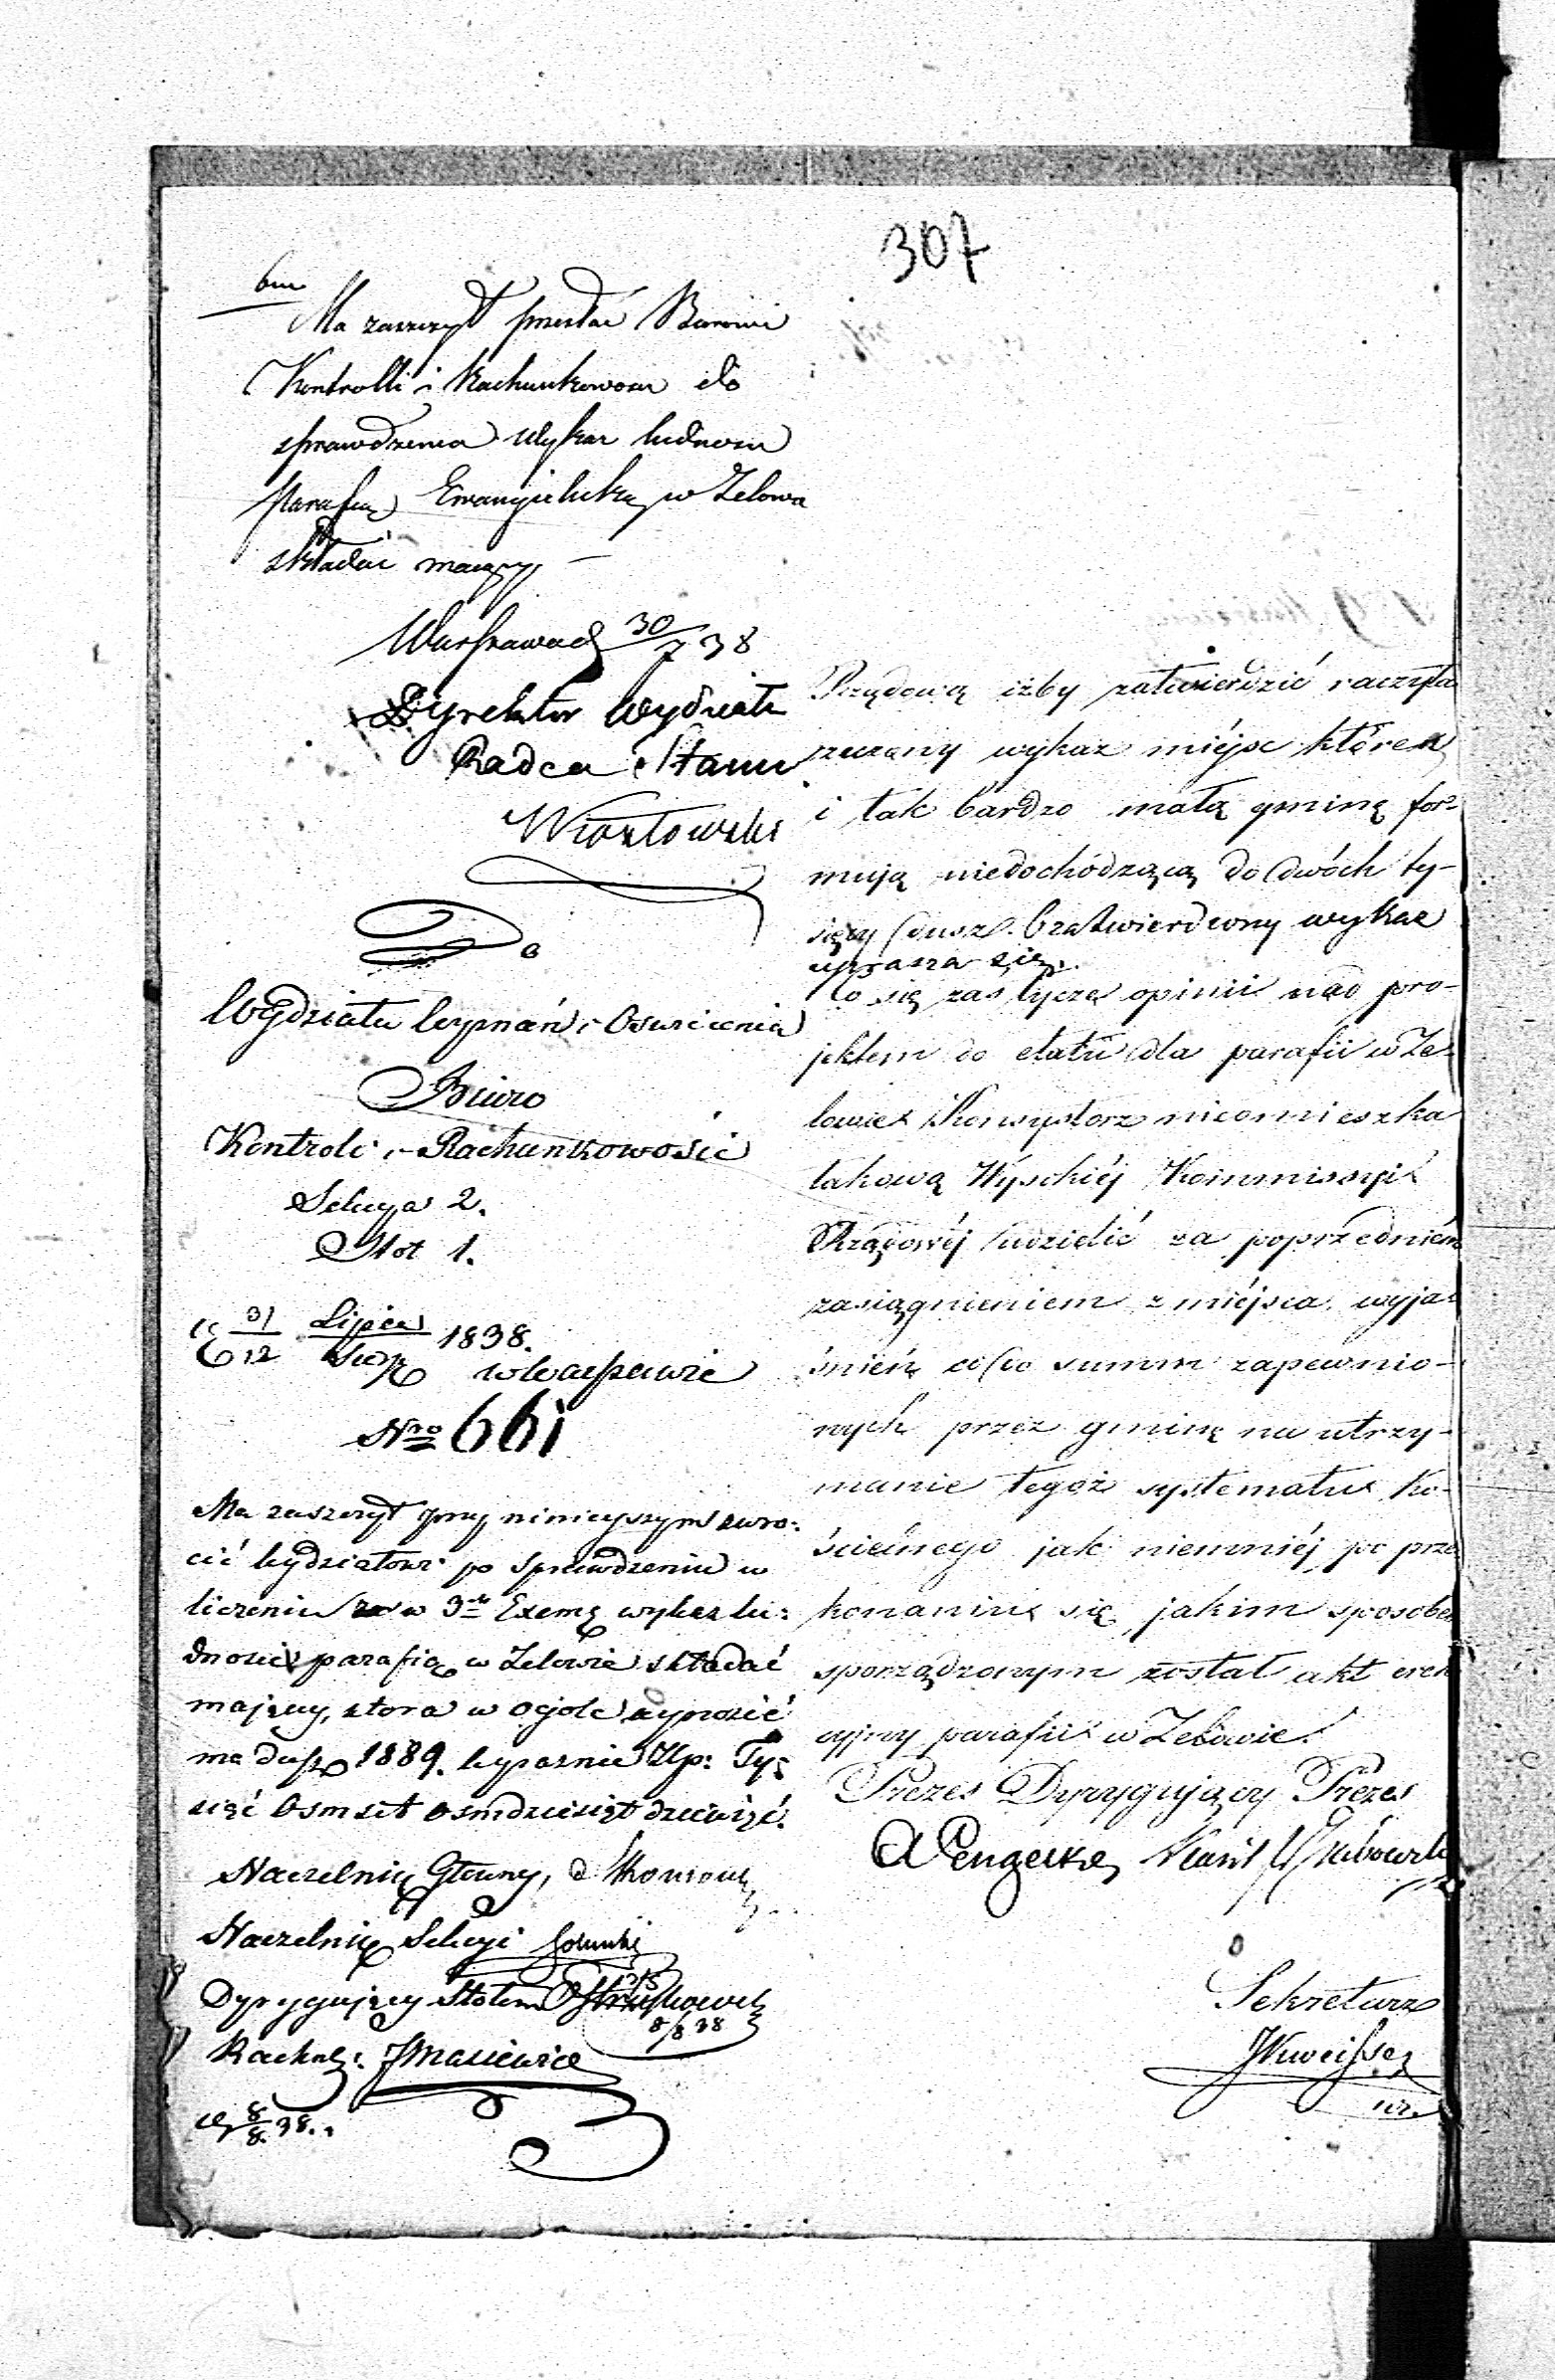 307
Ma zaszczyt przesłać Biurowi
Kontrolli i Rachunkowosci do
sprawdzenia Wykaz ludnosci
Parafią Ewangielicką w Zelowie
składać maiący
Warszawa d 30/7 38
Dyrektor Wydziału
Radca Stanu
Do
Wydziału Wyznań i Oswiecenia
Biuro
Kontroli i Rachunkowości
Sekcya 2.
Stół 1.
d 31/12 Lipca/Sierp 1838.
w Warszawie
Nro 661
Ma zaszczyt przy niniejszym zwro-
cić Wydziałowi po sprawdzeniu w
liczeniu w 3ch Exemp wykaz lu-
dności parafią w Zelowie składać
mający, ktora w ogóle wynosić
ma dusz 1889. wyraznie Ty-
siąc Osmset osmdziesiąt dziewięć.
Naczelnik Główny,
Naczelnik Sekcyi
Dyrygujący Stołem
8/8 38
Rachm:
d 8/8 38.
Rządową iżby zatwierdzić raczyła
rzeczony wykaz miéjsc które
i tak bardzo małą gminę for-
mują niedochodzącą do dwóch ty-
sięcy dusz. O zatwierdzony wykaz
uprasza się.
Co się zaś tycze opinii nad pro-
jektem do etatu dla parafii w Ze-
lowie Konsystorz nieomieszka
takową Wysokiéj Kommissyi
Rządowéj udzielić za poprzedniém
zasiągnieniem z miéjsca wyja-
śnień co do summ zapewnio-
nych przez gminę na utrzy-
manie tegoż systematu ko-
ścielnego jak niemniéj po prze
konaniu się jakim sposobem
sporządzonym został akt erek
cyjny parafii w Zelowie.
Prezes Dyrygujący Prezes
Sekretarz